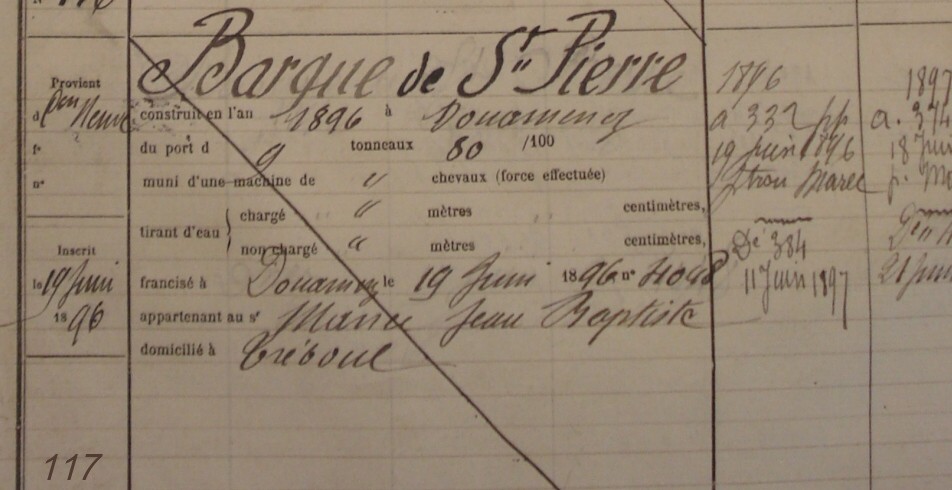 Barque de St Pierre
Provient
d
Neuve
construit en l'an 1896 à Douarnenez
fº
du port d 9 tonneaux 80 /100
nº
muni d'une machine de " chevaux (force effectuée)
tirant d'eau { chargé " mètres " centimètres,
non chargé " mètres centimètres,
Inscrit
le 19 Juin
1896
francisé à Douarnenez le 19 Juin 1896 nº
appartenant au sr Jean Baptiste
domicilié à Tréboul
1896
a 332 pp
19 Juin 1896
Dé 384
11 Juin 1897
1897
a. 374
18 Juin
p.
21 Juin
117